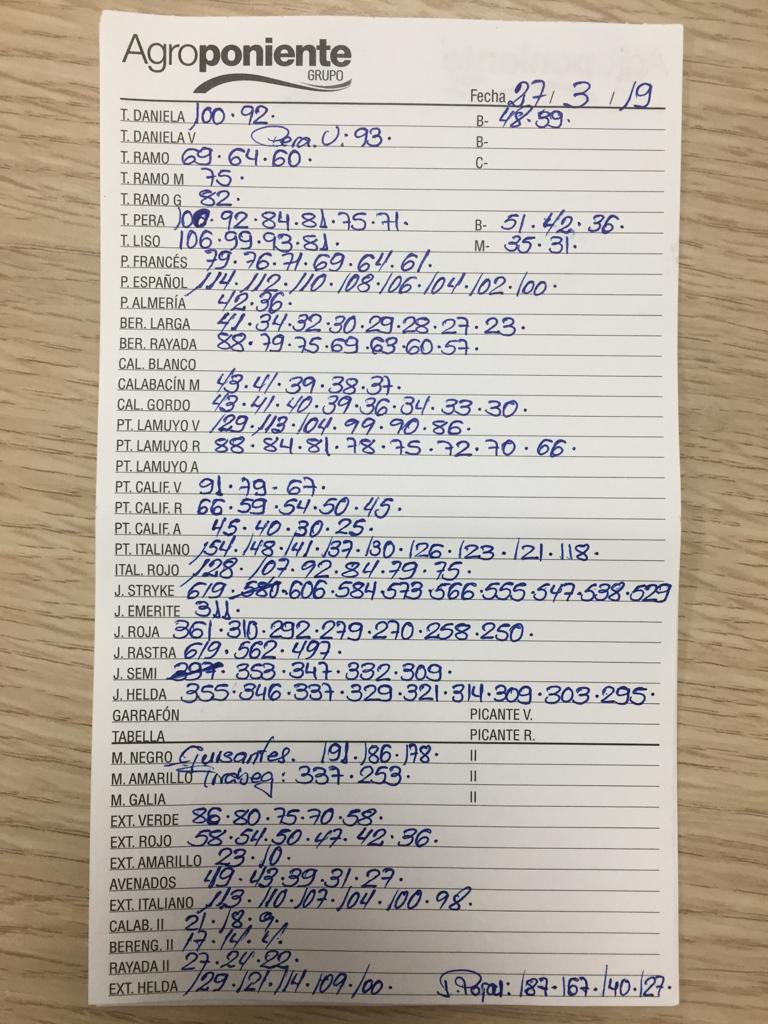 Agroponiente
GRUPO
Fecha 27/ 3 / 19
T. DANIELA 100 · 92 · B- 48 · 39 ·
T. DANIELA V Pera V: 93 · B-
T. RAMO 69 · 64 · 60 · C-
T. RAMO M 75 ·
T. RAMO G 82 ·
T. PERA 100 · 92 · 84 · 81 · 75 · 71 · B- 51 · 42 · 36 ·
T. LISO 106 · 99 · 93 · 81 · M- 35 · 31 ·
P. FRANCÉS 79 · 76 · 71 · 69 · 64 · 61 ·
P. ESPAÑOL 114 · 112 · 110 · 108 · 106 · 104 · 102 · 100 ·
P. ALMERÍA 42 · 36 ·
BER. LARGA 41 · 34 · 32 · 30 · 29 · 28 · 27 · 23 ·
BER. RAYADA 88 · 79 · 75 · 69 · 63 · 60 · 57 ·
CAL. BLANCO
CALABACÍN M 43 · 41 · 39 · 38 · 37 ·
CAL. GORDO 43 · 41 · 40 · 39 · 36 · 34 · 33 · 30 ·
PT. LAMUYO V 129 · 113 · 104 · 99 · 90 · 86 ·
PT. LAMUYO R 88 · 84 · 81 · 78 · 75 · 72 · 70 · 66 ·
PT. LAMUYO A
PT. CALIF. V 91 · 79 · 67 ·
PT. CALIF. R 66 · 59 · 54 · 50 · 45 ·
PT. CALIF. A 45 · 40 · 30 · 25 ·
PT. ITALIANO 154 · 148 · 141 · 137 · 130 · 126 · 123 · 121 · 118 ·
ITAL. ROJO 128 · 107 · 92 · 84 · 79 · 75 ·
J. STRYKE 619 · 580 · 606 · 584 · 573 · 566 · 555 · 547 · 538 · 529
J. EMERITE 311 ·
J. ROJA 361 · 310 · 292 · 279 · 270 · 258 · 250 ·
J. RASTRA 619 · 562 · 497 ·
J. SEMI 397 · 353 · 347 · 332 · 309 ·
J. HELDA 355 · 346 · 337 · 329 · 321 · 314 · 309 · 303 · 295 ·
GARRAFÓN PICANTE V.
TABELLA PICANTE R.
M. NEGRO Guisantes. 191 · 186 · 178 · II
M. AMARILLO : 337 · 253 · II
M. GALIA II
EXT. VERDE 86 · 80 · 75 · 70 · 58 ·
EXT. ROJO 58 · 54 · 50 · 47 · 42 · 36 ·
EXT. AMARILLO 23 · 10 ·
AVENADOS 49 · 43 · 39 · 31 · 27 ·
EXT. ITALIANO 113 · 110 · 107 · 104 · 100 · 98 ·
CALAB. II 21 · 18 · 9 ·
BERENG. II 17 · 14 · 4 ·
RAYADA II 27 · 24 · 22 ·
EXT. HELDA 129 · 121 · 114 · 109 · 100 · : 187 · 167 · 140 · 127 ·